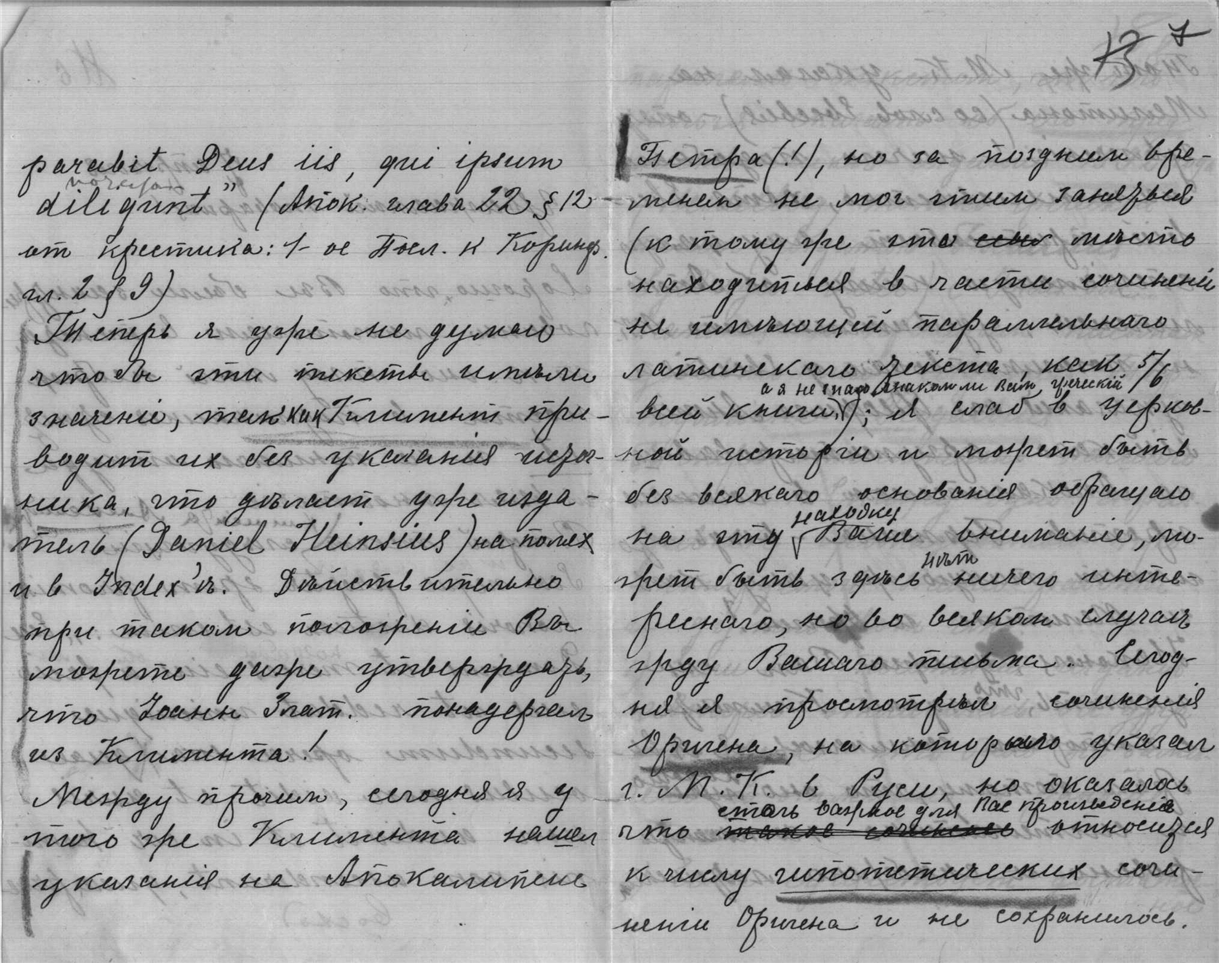 parabit Deus iis, qui ipsum
diligunt" (Апок. глава 22 § 12
от крестика: 1-ое Посл. к Коринф.
гл. 2 § 9)
Теперь я уже не думаю
чтобы эти тексты имѣли
значеніе, так как Климент при-
водит их без указанія источ-
ника, что дѣлает уже изда-
тель (Daniel Heinsius) на полях
и в Index'ѣ. Дѣйствительно
при таком положеніи Вы
можете даже утверждать,
что Іоанн Злат. понадергал
из Климента!
Между прочим, сегодня я у
того же Климента нашел
указанія на Апокалипсис
7
Петра (!), но за поздним вре-
менем не мог этим заняться
(к тому же это мѣсто
находится в части сочиненій
не имѣющей параллельнаго
латинскаго текста, как 5/6
а я не знаю знаком ли Вам греческій
всей книги); я слаб в церков-
ной исторіи и может быть
без всякаго основанія обращаю
на эту находку Ваше вниманіе, мо-
жет быть здѣсь нѣт ничего инте-
реснаго, но во всяком случаѣ
жду Вашаго письма. Сегод-
ня я просмотрѣл сочиненія
Оригена, на котораго указал
г. М. К. в Руси, но оказалось
столь важное для Вас произведеніе
что относится
к числу гипотетических сочи-
неній Оригена и не сохранилось.